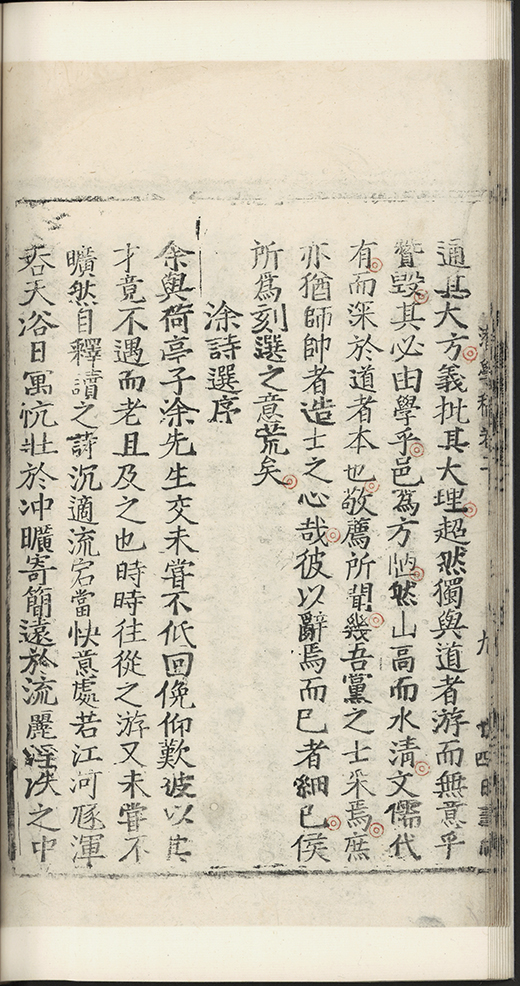 通其大方義批其大理超然獨與道者游而無意乎
贊毀其必由學乎邑為方陋然山高而水清文儒代
有而深於道者本也敬薦所聞幾吾黨之士采焉庶
亦猶師帥者造士之心哉彼以辭焉而已者細已侯
所為刻選之意荒矣
涂詩選序
余與荷亭子涂先生交未嘗不低回俛仰歎彼以其
才竟不遇而老且及之也時時往從之游又未嘗不
曠然自釋讀之詩沉適流宕當快意處若江河隊渾
吞天浴日寓忼壯於冲曠寄簡遠於流麗淫泆之中
九